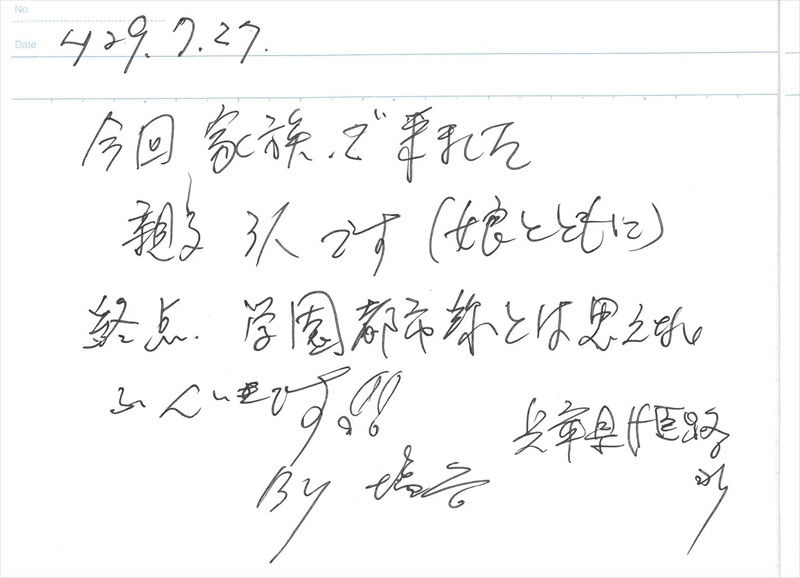 No.
Date
H29.7.27.
今回家族で来ました
親子3人です(娘とともに)
終点.学園都市線とは思えない
ふんいきです!!
兵庫県姫路
By